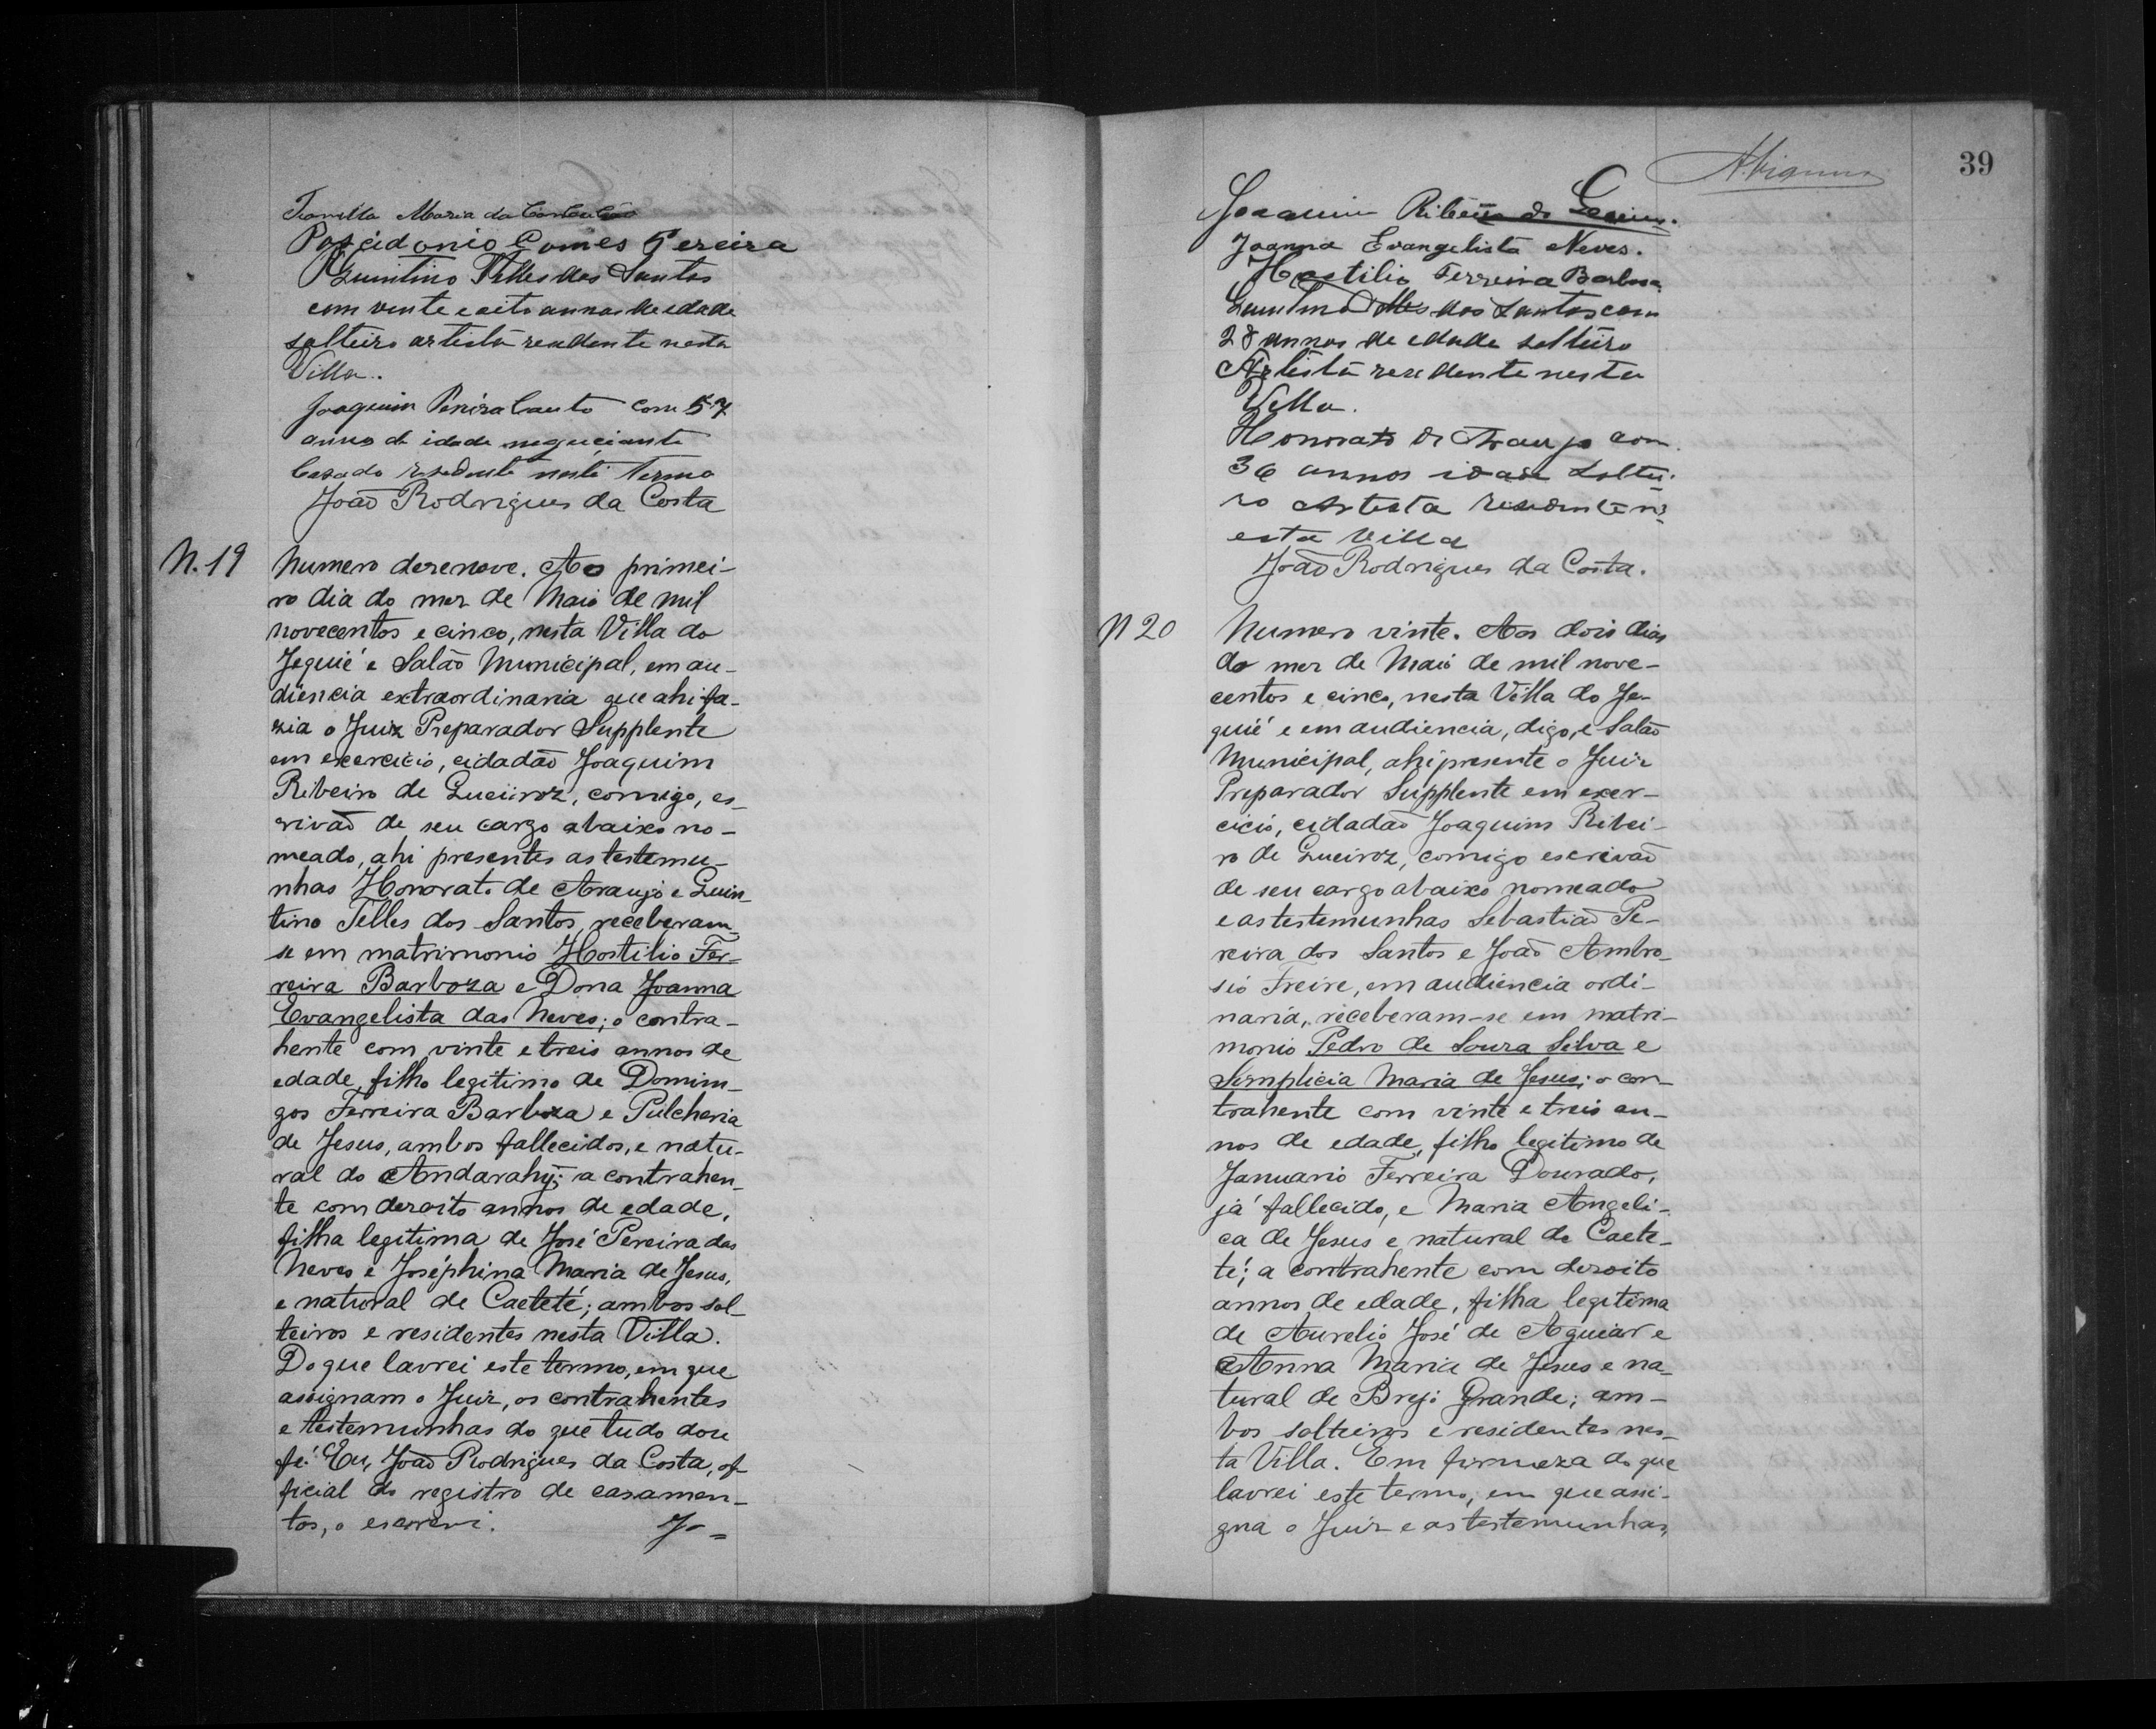 Maria da Conceição
Poscidonio Gomes Pereira
Quintino Telles dos Santos
com vinte e oito annos de edade
solteiro artista residente nesta
Villa.
Joaquim Pereira Couto com 57
annos de idade negociante
Casado residente neste Termo
João Rodrigues da Costa
N. 19
Numero dezenove. Ao primei-
ro dia do mez de Maio de mil
novecentos e cinco, nesta Villa do
Jequié e Salão Municipal, em au-
diencia extraordinaria que ahi fa-
zia o Juiz Preparador Supplente
em exercicio, cidadão Joaquim
Ribeiro de Queiroz, comigo, es-
crivão de seu cargo abaixo no-
meado, ahi presentes as testemu-
nhas Honorato de Araujo e Quin-
tino Telles dos Santos, receberam-
se em matrimonio Hostilio Fer-
reira Barboza e Dona Joanna
Evangelista das Neves; o contra-
hente com vinte e treis annos de
edade, filho legitimo de Domin-
gos Ferreira Barboza e Pulcheria
de Jesus, ambos fallecidos, e natu-
ral do Andarahy; a contrahen-
te com dezoito annos de edade,
filha legitima de José Pereira das
Neves e Joséphina Maria de Jesus,
e natural de Caeteté; ambos sol-
teiros e residentes nesta Villa.
Do que lavrei este termo, em que
assignam o Juiz, os contrahentes
e testemunhas do que tudo dou
fé. Eu, João Rodrigues da Costa, of-
ficial do registro de casamen-
tos, o escrevi. Jo=
39
Joaquim Ribeiro de Queiroz.
Joanna Evangelista Neves.
Hostilio Ferreira Barboza
Quintino Telles dos Santos com
28 annos de edade solteiro
Artista residente nesta
Villa.
Honorato de Araujo com
36 annos idade Soltei-
ro Artista residente n-
esta Villa
João Rodrigues da Costa.
N 20
Numero vinte. Aos dois dias
do mez de Maio de mil nove-
centos e cinco, nesta Villa do Je-
quié e em audiencia, digo, e Salão
Municipal, ahi presente o Juiz
Preparador Supplente em exer-
cicio, cidadão Joaquim Ribei-
ro de Queiroz, comigo escrivão
de seu cargo abaixo nomeado
e as testemunhas Sebastião Pe-
reira dos Santos e João Ambro-
sio Freire, em audiencia ordi-
naria, receberam-se em matri-
monio Pedro de Souza Silva e
Simplicia Maria de Jesus; o con-
trahente com vinte e treis an-
nos de edade, filho legitimo de
Januario Ferreira Dourado,
já fallecido, e Maria Angeli-
ca de Jesus e natural de Caete-
té; a contrahente com dezoito
annos de edade, filha legitima
de Aurelio José de Aguiar e
Anna Maria de Jesus e na-
tural de Brejo Grande; am-
bos solteiros e residentes nes-
ta Villa. Em firmeza do que
lavrei este termo, em que assi-
gna o Juiz e as testemunhas,